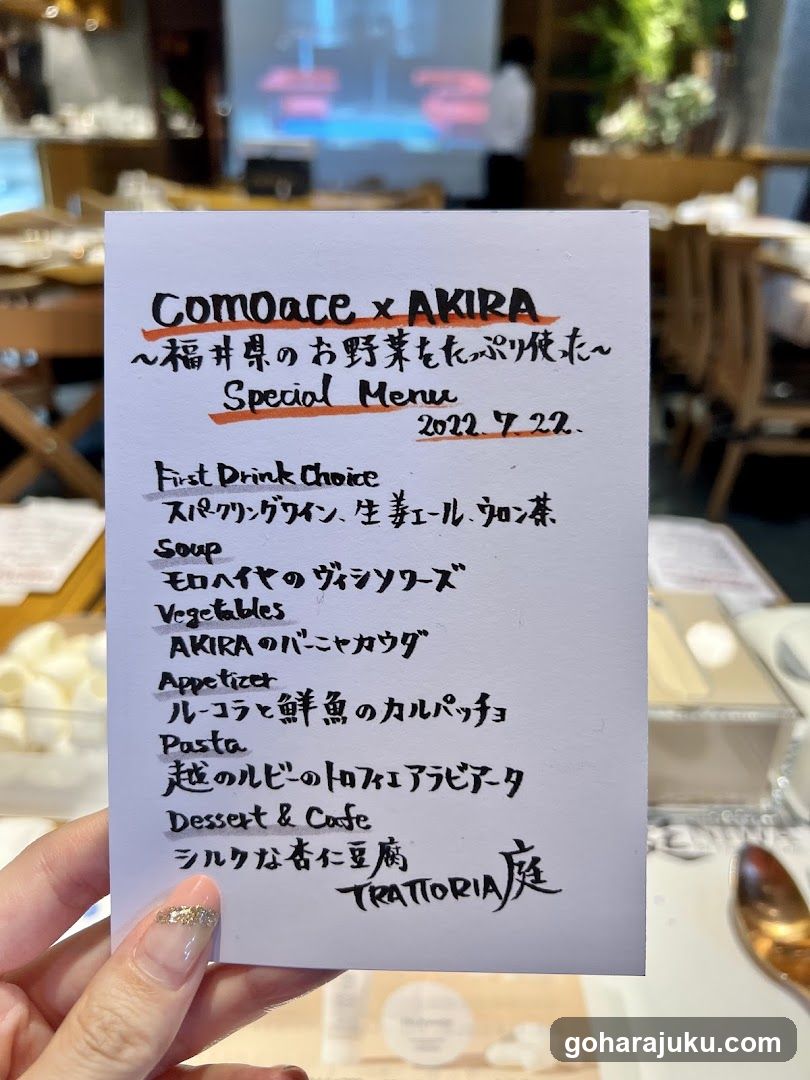 comoace x AKIRA
～福井県のお野菜をたっぷり使った～
Special Menu
2022.7.22.
First Drink Choice
スパークリングワイン、生姜エール、ウロン茶
Soup
モロヘイヤのヴィシソワーズ
Vegetables
AKIRAのバーニャカウダ
Appetizer
ルーコラと鮮魚のカルパッチョ
Pasta
越のルビーのトロフィエアラビアータ
Dessert & Cafe
シルクな杏仁豆腐
TRATTORIA庭
goharajuku.com